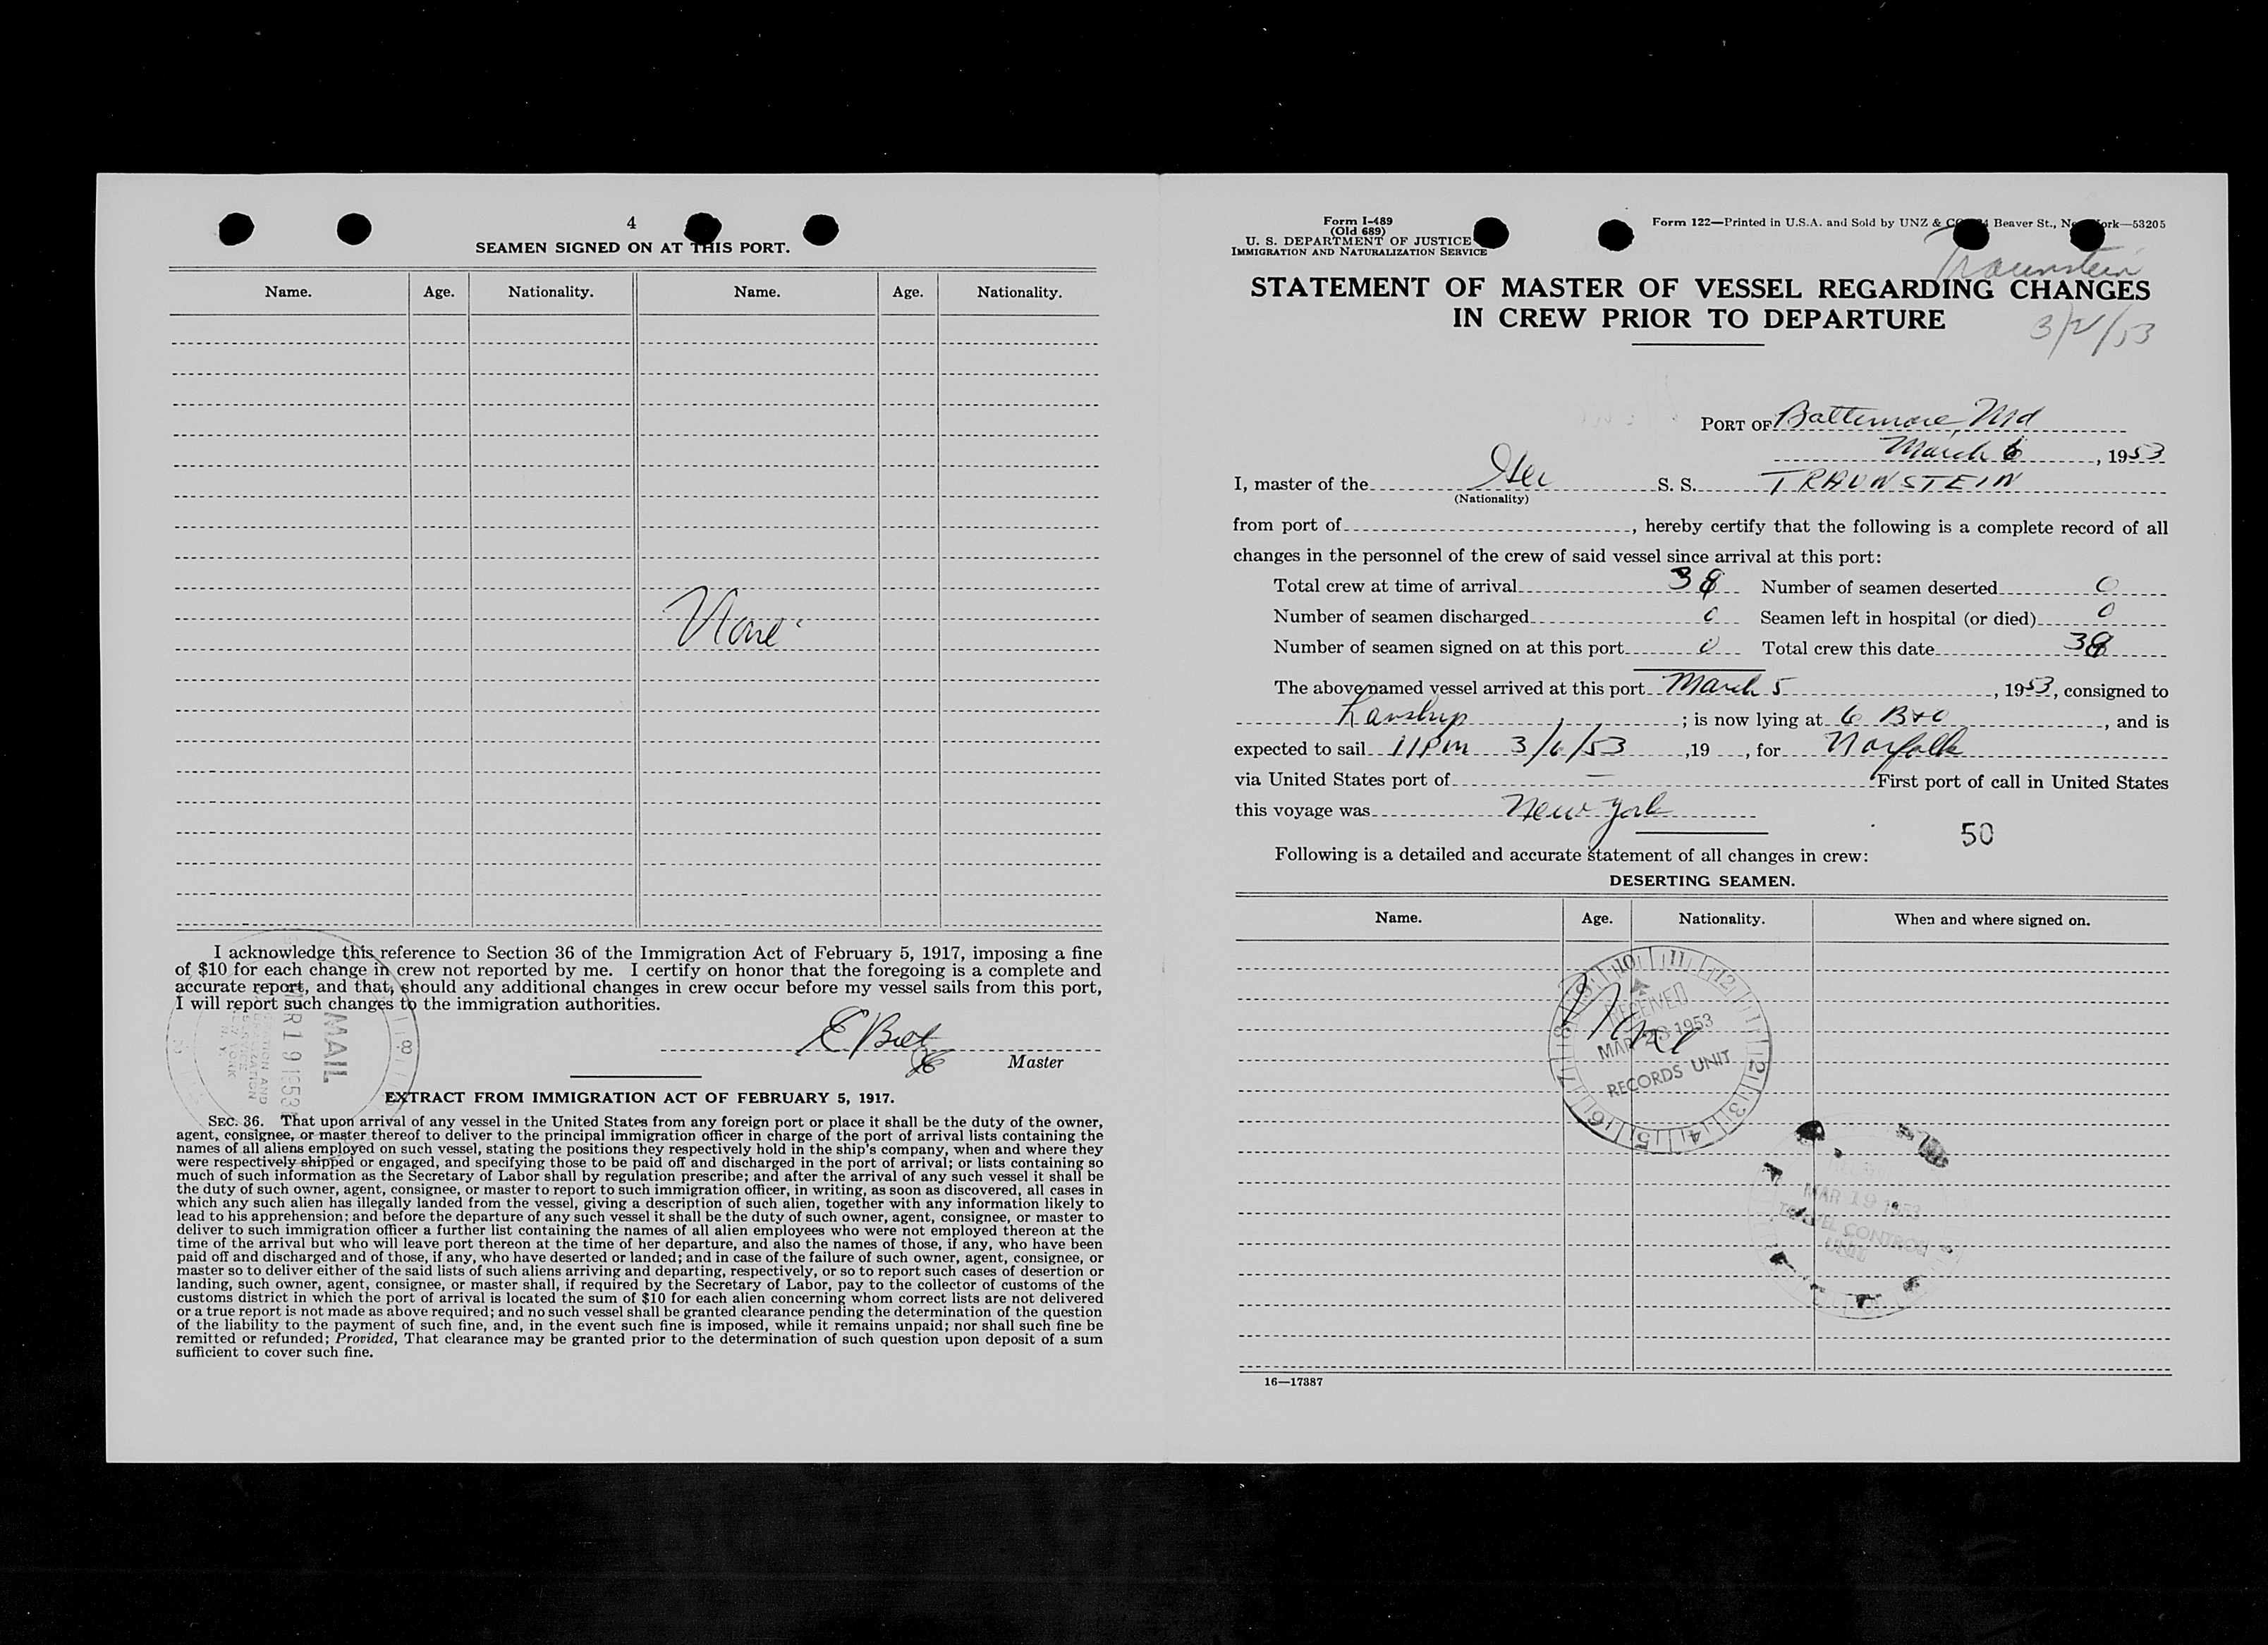 4
SEAMEN SIGNED ON AT THIS PORT.
Name. Age. Nationality. Name. Age. Nationality.
None
I acknowledge this reference to Section 36 of the Immigration Act of February 5, 1917, imposing a fine
of $10 for each change in crew not reported by me. I certify on honor that the foregoing is a complete and
accurate report, and that, should any additional changes in crew occur before my vessel sails from this port,
I will report such changes to the immigration authorities.
MAIL
Master
EXTRACT FROM IMMIGRATION ACT OF FEBRUARY 5, 1917.
SEC. 36. That upon arrival of any vessel in the United States from any foreign port or place it shall be the duty of the owner,
agent, consignee, or master thereof to deliver to the principal immigration officer in charge of the port of arrival lists containing the
names of all aliens employed on such vessel, stating the positions they respectively hold in the ship's company, when and where they
were respectively shipped or engaged, and specifying those to be paid off and discharged in the port of arrival; or lists containing so
much of such information as the Secretary of Labor shall by regulation prescribe; and after the arrival of any such vessel it shall be
the duty of such owner, agent, consignee, or master to report to such immigration officer, in writing, as soon as discovered, all cases in
which any such alien has illegally landed from the vessel, giving a description of such alien, together with any information likely to
lead to his apprehension; and before the departure of any such vessel it shall be the duty of such owner, agent, consignee, or master to
deliver to such immigration officer a further list containing the names of all alien employees who were not employed thereon at the
time of the arrival but who will leave port thereon at the time of her departure, and also the names of those, if any, who have been
paid off and discharged and of those, if any, who have deserted or landed; and in case of the failure of such owner, agent, consignee, or
master so to deliver either of the said lists of such aliens arriving and departing, respectively, or so to report such cases of desertion or
landing, such owner, agent, consignee, or master shall, if required by the Secretary of Labor, pay to the collector of customs of the
customs district in which the port of arrival is located the sum of $10 for each alien concerning whom correct lists are not delivered
or a true report is not made as above required; and no such vessel shall be granted clearance pending the determination of the question
of the liability to the payment of such fine, and, in the event such fine is imposed, while it remains unpaid; nor shall such fine be
remitted or refunded; Provided, That clearance may be granted prior to the determination of such question upon deposit of a sum
sufficient to cover such fine.
Form I-489
(Old 689)
U. S. DEPARTMENT OF JUSTICE
IMMIGRATION AND NATURALIZATION SERVICE
Form 122—Printed in U.S.A. and Sold by UNZ & Beaver St., 53205
Traunstein
STATEMENT OF MASTER OF VESSEL REGARDING CHANGES
IN CREW PRIOR TO DEPARTURE
3/2/53
PORT OF Baltimore, Md
March 6, 1953
I, master of the Ger S. S. TRAUNSTEIN
(Nationality)
from port of , hereby certify that the following is a complete record of all
changes in the personnel of the crew of said vessel since arrival at this port:
Total crew at time of arrival 38 Number of seamen deserted 0
Number of seamen discharged 0 Seamen left in hospital (or died) 0
Number of seamen signed on at this port 0 Total crew this date 38
The above named vessel arrived at this port March 5, 1953, consigned to
; is now lying at 6 B+O, and is
expected to sail 11 PM 3/6/53, 19 , for Norfolk
via United States port of — First port of call in United States
this voyage was New York
50
Following is a detailed and accurate statement of all changes in crew:
DESERTING SEAMEN.
Name. Age. Nationality. When and where signed on.
None
RECEIVED
RECORDS UNIT
MAR 19 1953
TRAVEL CONTROL
UNIT
16—17387